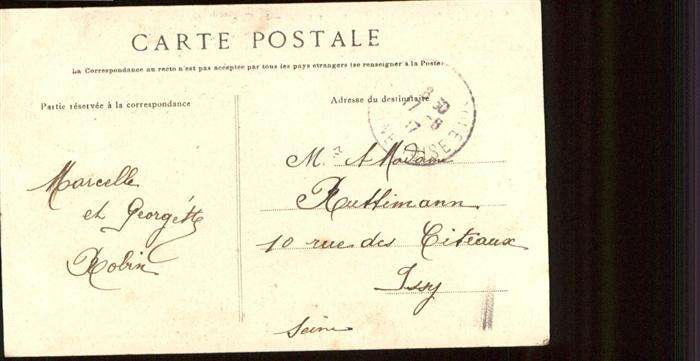 CARTE POSTALE
La Correspondance au recto n'est pas acceptée par tous les pays étrangers (se renseigner à la Poste)
Partie réservée à la correspondance
Adresse du destinataire
Marcelle
et Georgette
Robin
M. & Madame
Ruttimann
10 rue des Citeaux
Issy
Seine